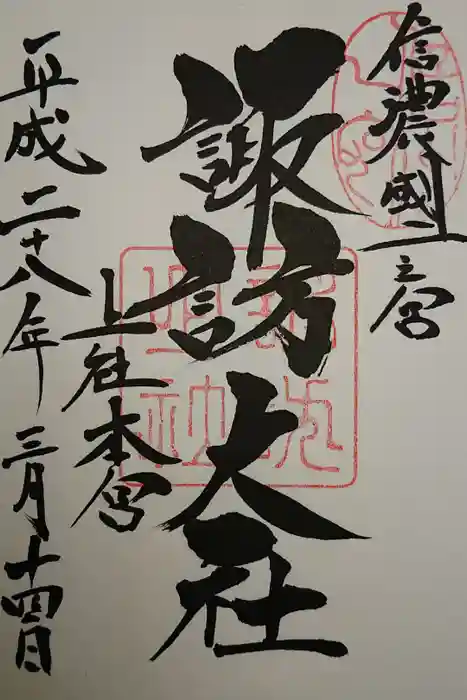 信濃國一之宮
諏訪大社
上社本宮
平成二十八年三月十四日